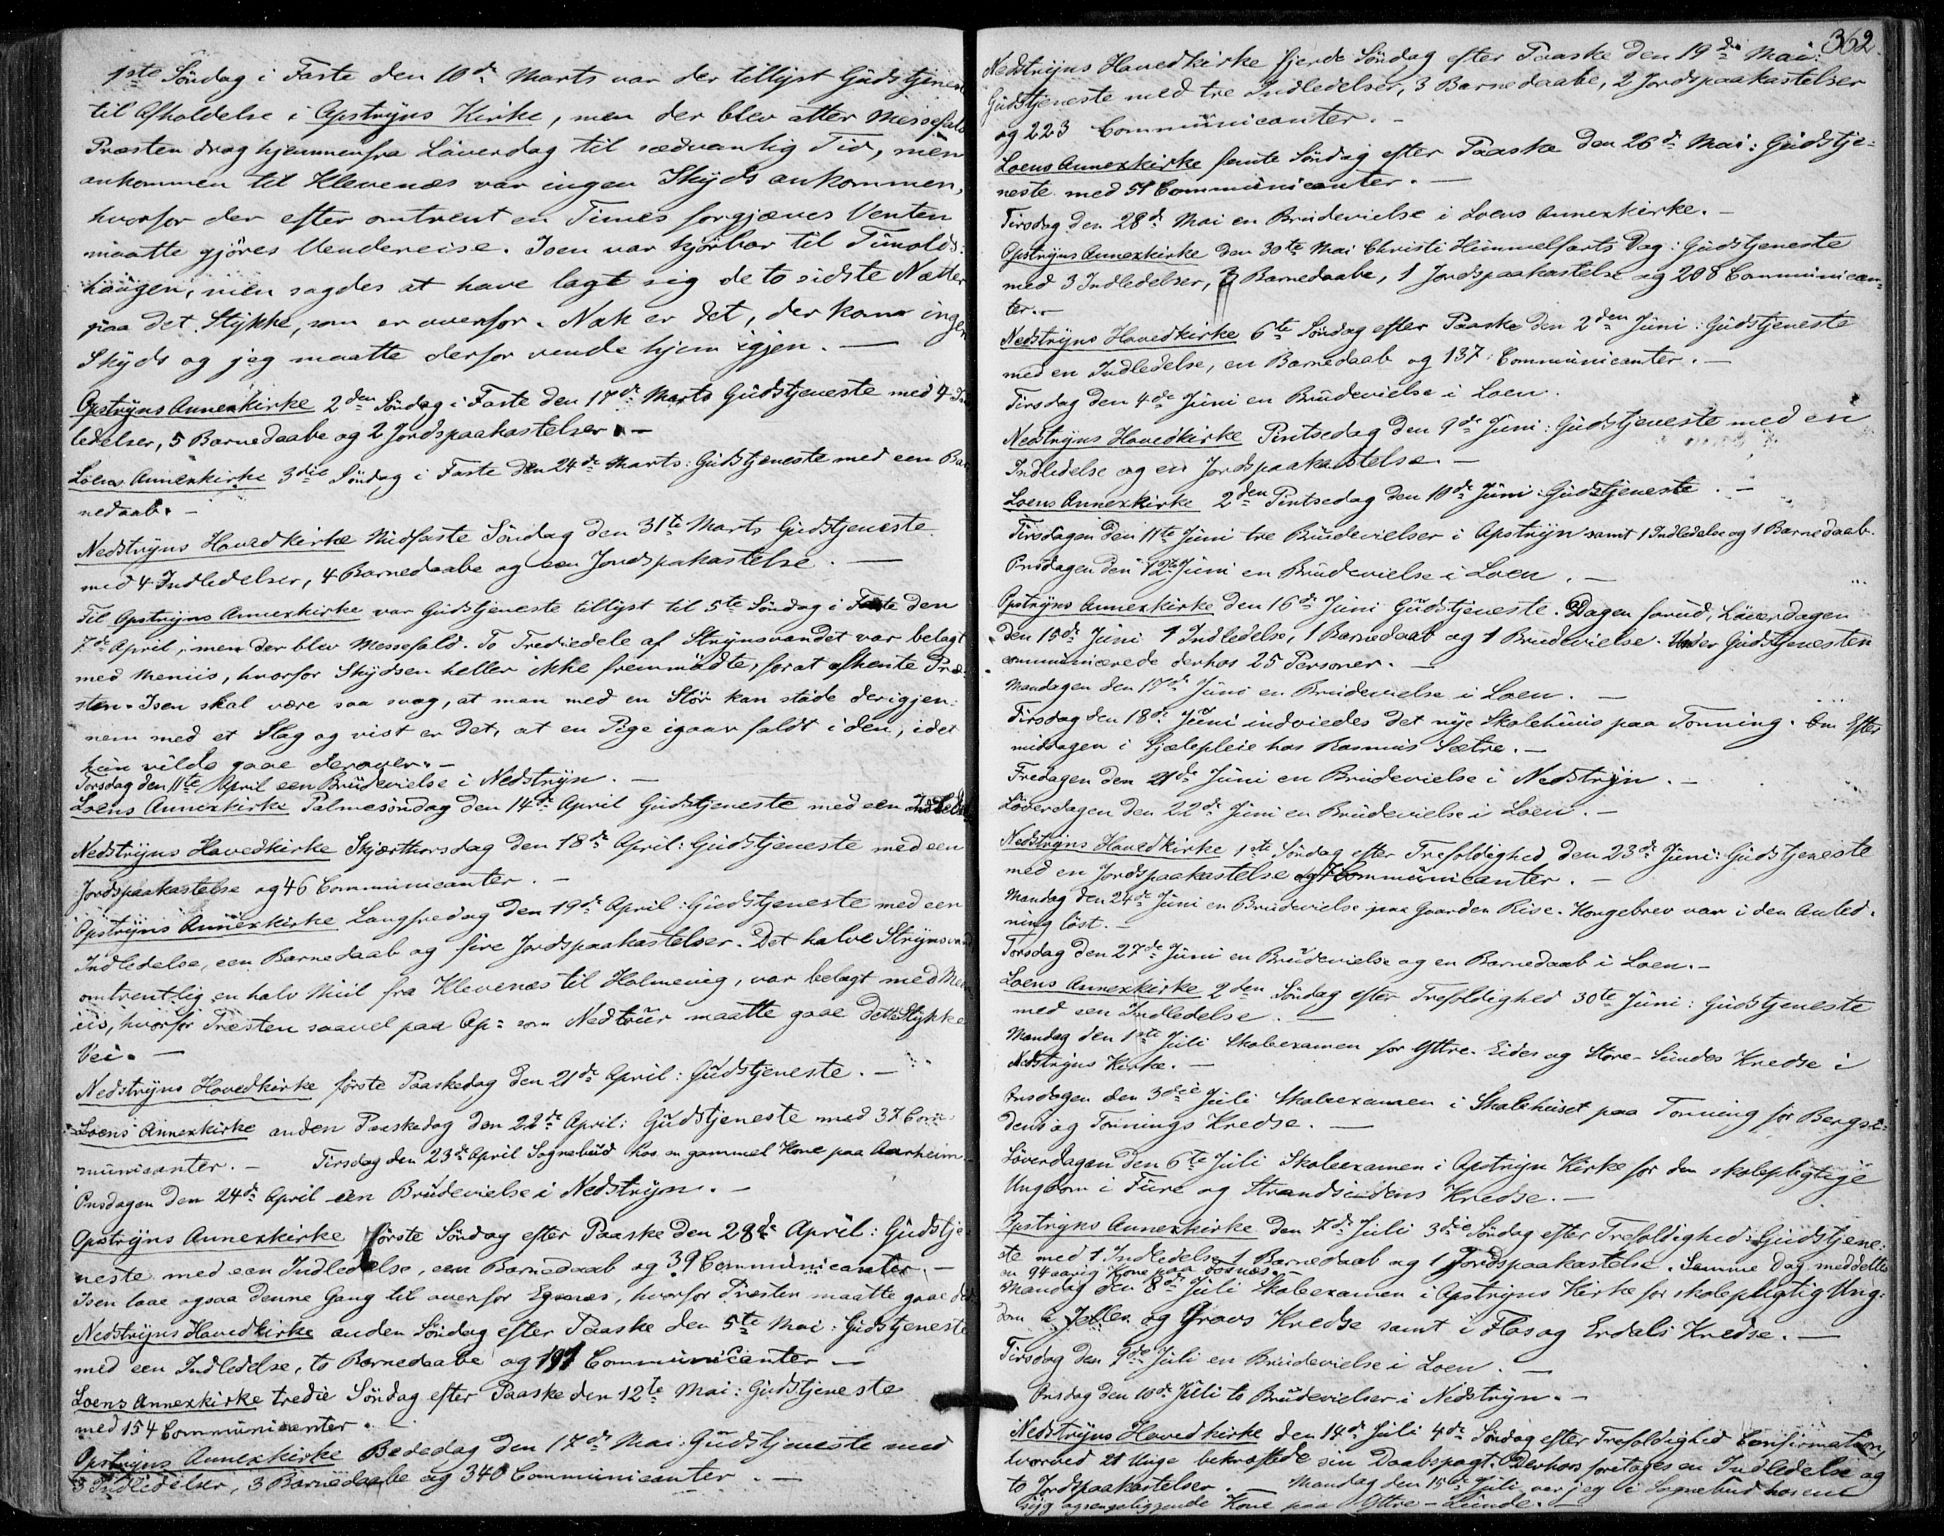 1ste Söndag i Faste den 10de Marts var der tillyst Gudstjenes
til Afholdelse i Opstryns Kirke, men der blev atter Messefald
Præsten drog hjemmenfra Löverdag til sædvanlig Tid, men
ankommen til Klevenæs var ingen Skyds ankommen,
hvorfor der efter omtrent en Times forgjæves Venten
maatte gjöres Vendereise. Isen var kjörbar til Tunolds-
haugen, men sagdes at have lagt sig de to sidste Nætter
paa det Stykke, som er ovenfor. Nok er det, der kom ingen
Skyds og jeg maatte derfor vende hjem igjen. —
Opstryns Annexkirke 2den Söndag i Faste den 17de Marts Gudstjeneste med 4 Ind
ledelser, 5 Barnedaabe og 2 Jordspaakastelser. —
Loens Annexkirke 3die Söndag i Faste den 24de Marts: Gudstjeneste med een Bar
nedaab. —
Nedstryns Hovedkirke Midfaste Söndag den 31te Marts Gudstjeneste
med 4 Indledelser, 4 Barnedaabe og een Jordspakastelse. —
Til Opstryns Annexkirke var Gudstjeneste tillyst til 5te Söndag i Faste den
7de April, men der blev Messefald. To Trediedele af Strynsvandet var belagt
med Meniis, hvorfor Skydsen heller ikke fremmödte, forat afhente Præ-
sten. Isen skal være saa svag, at man med en Stör kan stöde derigjen-
nem med et Slag og vist er det, at en Pige igaar faldt i den, idet
hun vilde gaae derover. —
Torsdag den 11te April een Brudevielse i Nedstryn. —
Loens Annexkirke Palmesöndag den 14de April Gudstjeneste med een Indledel
Nedstryns Hovedkirke Skjærthorsdag den 18de April: Gudstjeneste med een
Jordspaakastelse og 46 Communicanter. —
Opstryns Annexkirke Langfredag den 19de April: Gudstjeneste med een
Indledelse, een Barnedaab og fire Jordspaakastelser. Det halve Strynsvand
omtrentlig en halv Miil fra Klevenæs til Holmevig, var belagt med Men-
iis, hvorfor Præsten saavel paa Op- som Nedtour maatte gaae dette Stykke
Vei. —
Nedstryns Hovedkirke förste Paaskedag den 21de April: Gudstjeneste. —
Loens Annexkirke anden Paaskedag den 22de April: Gudstjeneste med 37 Com-
municanter. — Tirsdag den 23de April Sognebud hos en gammel Kone paa Aarheim
Onsdagen den 24de April een Brudevielse i Nedstryn. —
Opstryns Annexkirke förste Söndag efter Paaske den 28de April: Gudstje-
neste med een Indledelse, een Barnedaab og 39 Communicanter. —
Isen laae ogsaa denne Gang til ovenfor Egenæs, hvorfor Præsten maatte gaae
Nedstryns Hovedkirke anden Söndag efter Paaske den 5te Mai: Gudstjeneste
med een Indledelse, to Barnedaabe og 191 Communicanter —
Loens Annexkirke tredie Söndag efter Paaske den 12te Mai: Gudstjeneste
med 154 Communicanter.
Opstryns Annexkirke Bededag den 17de Mai: Gudstjeneste med
3 Indledelser, 3 Barnedaabe og 340 Communicanter. —
362.
Nedstryns Hovedkirke fjerde Söndag efter Paaske den 19de Mai:
Gudstjeneste med tre Indledelser, 3 Barnedaabe, 2 Jordspaakastelser
og 223 Communicanter. —
Loens Annexkirke femte Söndag efter Paaske den 26de Mai: Gudstje-
neste med 51 Communicanter. —
Tirsdag den 28de Mai en Brudevielse i Loens Annexkirke. —
Opstryns Annexkirke den 30te Mai Christi Himmelfarts Dag: Gudstjeneste
med 3 Indledelser, Barnedaabe, 1 Jordspaakastelse og 208 Communican-
ter. —
Nedstryns Hovedkirke 6te Söndag efter Paaske den 2den Juni: Gudstjeneste
med en Indledelse, en Barnedaab og 137 Communicanter. —
Tirsdag den 4de Juni en Brudevielse i Loen.
Nedstryns Hovedkirke Pintsedag den 9de Juni: Gudstjeneste med en
Indledelse og en Jordspaakastelse. —
Loens Annexkirke 2den Pintsedag den 10de Juni: Gudstjeneste. —
Tirsdagen den 11te Juni tre Brudevielser i Opstryn samt 1 Indledelse og 1 Barnedaab.
Onsdagen den 12te Juni en Brudevielse i Loen. —
Opstryns Annexkirke den 16de Juni Gudstjeneste. Dagen forud, Löverdagen
den 15de Juni 1 Indledelse, 1 Barnedaab og 1 Brudevielse. Under Gudstjenesten
communicerede derhos 25 Personer. —
Mandagen den 17de Juni en Brudevielse i Loen. —
Tirsdag den 18de Juni indviedes det nye Skolehuus paa Tonning. Om Efter
middagen i Sjælepleie hos Rasmus Sætre. —
Fredagen den 21de Juni en Brudevielse i Nedstryn. —
Löverdagen den 22de Juni en Brudevielse i Loen. —
Nedstryns Hovedkirke 1ste Söndag efter Trefoldighed den 23de Juni: Gudstjeneste
med en Jordspaakastelse og Communicanter. —
Mandag den 24de Juni en Brudevielse paa Gaarden Rise. Kongebrev var i den Anled-
ning löst. —
Torsdag den 27de Juni en Brudevielse og en Barnedaab i Loen. —
Loens Annexkirke 2den Söndag efter Trefoldighed 30te Juni: Gudstjeneste
med een Indledelse. —
Mandag den 1ste Juli Skoleexamen for Yttre-Eides og Store-Sundes Kredse i
Nedstryns Kirke. —
Onsdagen den 3die Juli Skoleexamen i Skolehuset paa Tonning for Bergsi-
dens og Tonnings Kredse. —
Löverdagen den 6te Juli Skoleexamen i Opstryn Kirke for den skolepligtige
Ungdom i Fure og Strandsidens Kredse. —
Opstryns Annexkirke den 7de Juli 3die Söndag efter Trefoldighed: Gudstjene-
ste med 1 Indledelse, 1 Barnedaab og 1 Jordspaakastelse. Samme Dag meddeltes
en 94 aarig Kone paa
Mandag den 8de Juli Skoleexamen i Opstryns Kirke for skolepligtig Ung-
dom i Hjelle og Grovs Kredse samt i Flo og Erdals Kredse. —
Tirsdag den 9de Juli en Brudevielse i Loen. —
Onsdag den 10de Juli to Brudevielser i Nedstryn. —
Nedstryns Hovedkirke den 14de Juli 4de Söndag efter Trefoldighed Confirmation,
hvorved 21 Unge bekræftede sin Daabspagt. Derhos foretages en Indledelse og
to Jordspaakastelser. — Mandag den 15de Juli var jeg i Sognebud hos en
syg og sengeliggende Kone paa Yttre-Sunde. —